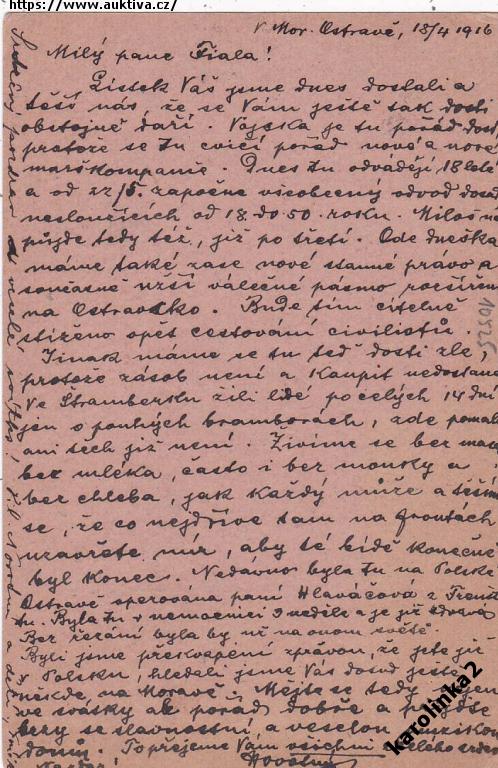 https://www.auktiva.cz/
V Mor. Ostravě, 18/4 1916
Milý pane Fiala!
Lístek Váš jsme dnes dostali a
těší nás, že se Vám ještě tak dosti
obstojně daří. Vojska je tu pořád dost
protože se tu cvičí pořád nové a nové
marškompanie. Dnes tu odvádějí 18 leté
a od 22/5. započne všeobecný odvod dosud
nesloužících od 18. do 50. roku. Miloš
půjde tedy též, již po třetí. Ode dneška
máme také zase nové stanné právo a
současně užší válečné pásmo rozšířeno
na Ostravsko. Bude tím citelně
stíženo opět cestování civilistů.
Jinak máme se tu teď dosti zle,
protože zásob není a koupit nedostane
Ve Stramberku žili lidé po celých 14 dní
jen o pouhých bramborách, zde pomalu
ani těch již není. Živíme se bez masa
bez mléka, často i bez mouky a
bez chleba, jak každý může a těším
se, že co nejdříve tam na frontách
uzavřete mír, aby té bídě konečně
byl konec. Nedávno byla tu na Polské
Ostravě operována paní Hlaváčová z
tu. Byla tu v nemocnici 3 neděle a je již zdráva
Bez řezání byla by už na onom světě.
Byli jsme překvapeni zprávou, že jste již
v Polsku, hledali jsme Vás dosud ještě
někde na Moravě. Mějte se tedy
ve svátky ale pořád dobře a přijďte
brzy se slavností a veselou muzikou
domů. To přejeme Vám všichni z celého srdce
karolinka2